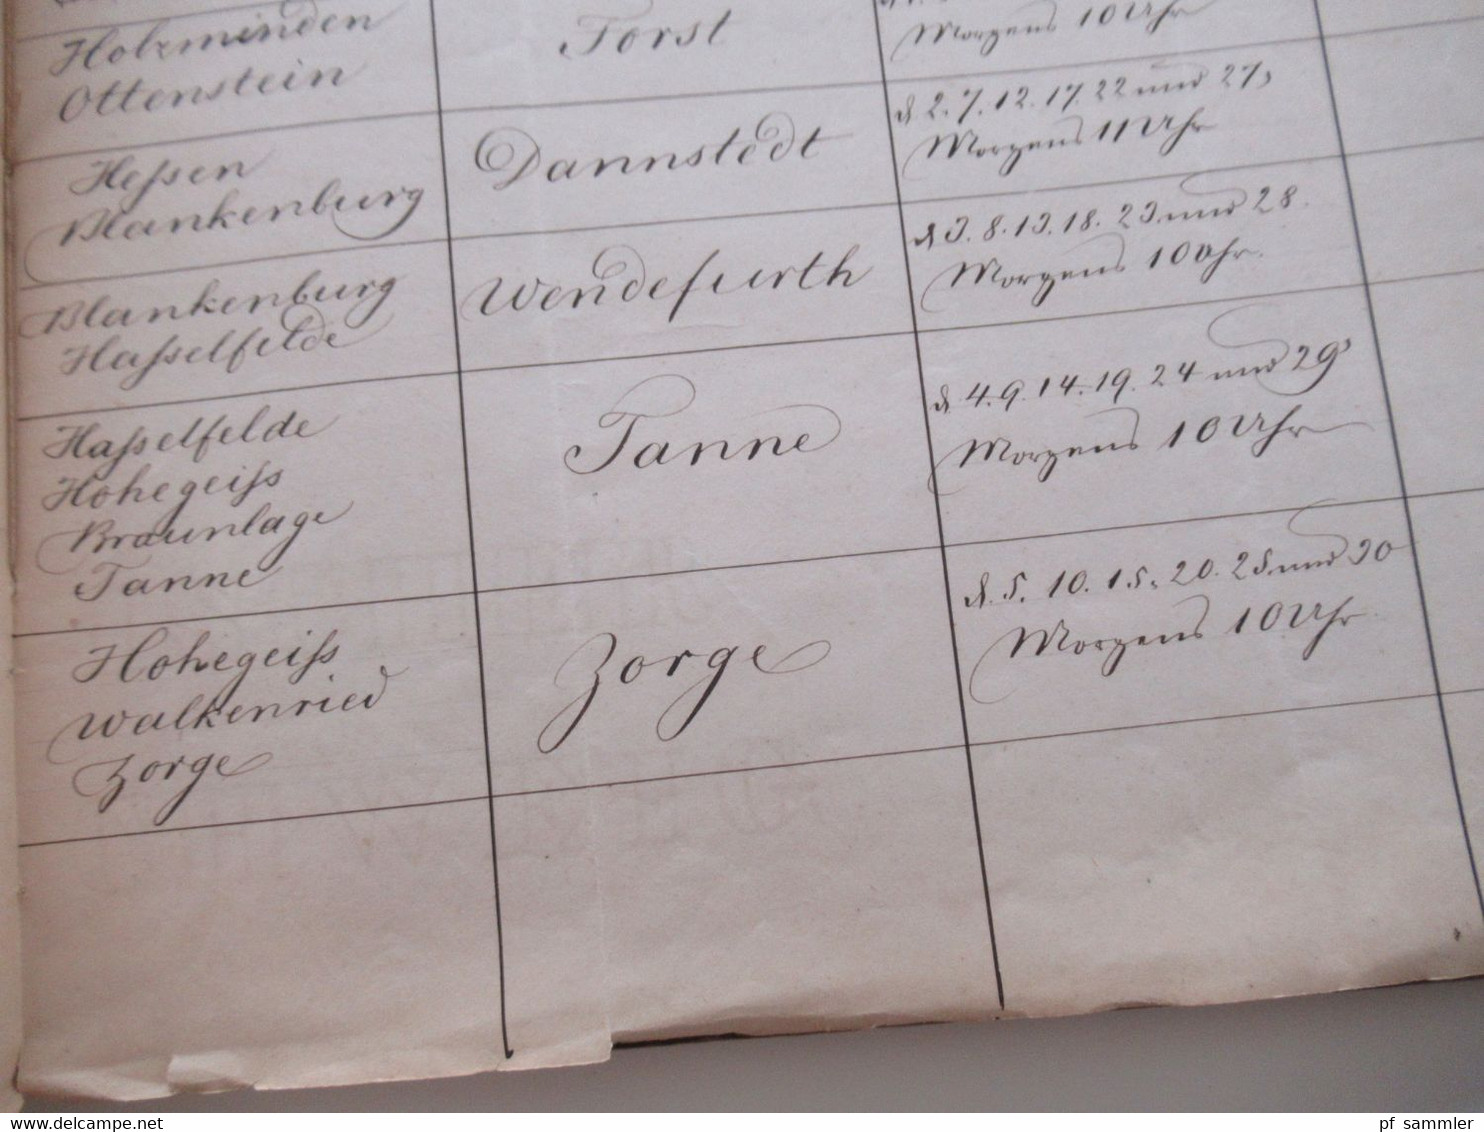 Holzminden
Ottenstein
Forst
Morgens 10 Uhr
Heſsen
Blankenburg
Dannstedt
d. 2. 7. 12. 17. 22 und 27,
Morgens 11 Uhr
Blankenburg
Haſselfelde
Wendefurth
d 3. 8. 13. 18. 23. und 28.
Morgens 10 Uhr.
Haſselfelde
Hohegeiſs
Braunlage
Tanne
Tanne
d. 4. 9. 14. 19. 24 und 29
Morgens 10 Uhr
Hohegeiſs
Walkenried
Zorge
Zorge
d. 5. 10. 15. 20. 25. und 30
Morgens 10 Uhr
pf sammler